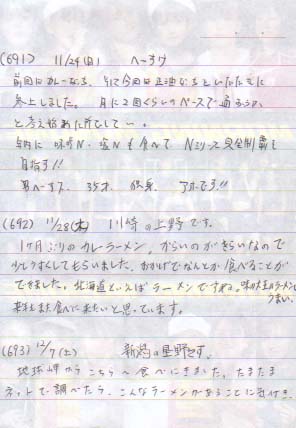 (691) 11/24(日) へーすけ
前回はカレーなる、
参上しました。 月に2回くらいのペースで通おうか
と考え始めた所でして〜。
味噌N・塩N も食べて Nシリーズ完全制覇を
目指す!!
35才 独身 アホです!!
(692) 11/28(木) 川崎の上野です。
1ヶ月ぶりのカレーラーメン。からいのがきらいなので
少しうすくしてもらいました。おかげでなんとか食べることが
できました。北海道といえばラーメンですね。味の大王のラーメン
うまい。
来年もまた食べに来たいと思っています。
(693) 12/7(土) 新潟の星野です。
地球岬からこちらへ食べにきました。たまたま
ネットで調べたら、こんなラーメンがあることに気付き、